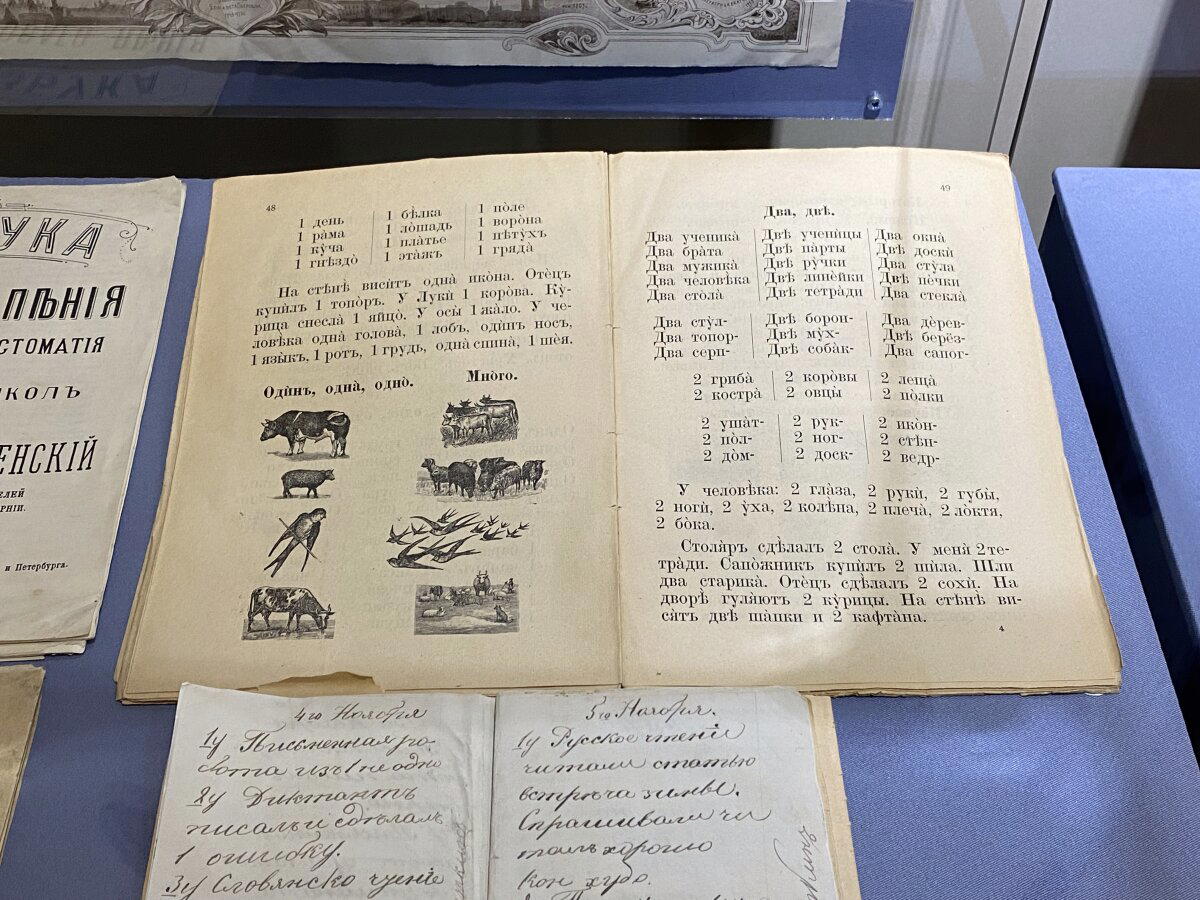 УКА
ПѢНІЯ
СТОМАТІЯ
КОЛЪ
ЕНСКІЙ
и Петербурга.
48
1 день | 1 бѣ̀лка | 1 по̀ле
1 ра̀ма | 1 ло̀шадь | 1 воро̀на
1 ку̀ча | 1 пла̀тье | 1 пѣту̀хъ
1 гнѣздо̀ | 1 эта̀жъ | 1 гряда̀
На стѣнѣ̀ виси̇̀тъ одна̀ ико̀на. Отѐцъ
купи̇̀лъ 1 топо̀ръ. У Луки̇̀ 1 коро̀ва. Ку̀-
рица снесла̀ 1 яйцо̀. У осы̀ 1 жа̀ло. У че-
ловѣ̀ка одна̀ голова̀, 1 лобъ, оди̇̀нъ носъ,
1 язы̀къ, 1 ротъ, 1 грудь, одна̀ спина̀, 1 шѐя.
Оди̇̀нъ, одна̀, одно̀.
Мно̀го.
49
Два, двѣ.
Два ученика̀ | Двѣ учени̇̀цы | Два окна̀
Два бра̀та | Двѣ па̀рты | Двѣ доски̇̀
Два мужика̀ | Двѣ ру̀чки | Два сту̀ла
Два человѣ̀ка | Двѣ линѐйки | Двѣ пѐчки
Два стола̀ | Двѣ тетра̀ди | Два стекла̀
Два сту̀л- | Двѣ борон- | Два дѐрев-
Два топор- | Двѣ му̀х- | Двѣ берёз-
Два серп- | Двѣ соба̀к- | Два сапог-
2 гриба̀ | 2 коро̀вы | 2 леща̀
2 костра̀ | 2 овцы̀ | 2 по̀лки
2 уша̀т- | 2 рук- | 2 ико̀н-
2 по̀л- | 2 ног- | 2 стѣн-
2 до̀м- | 2 доск- | 2 ведр-
У человѣ̀ка: 2 гла̀за, 2 руки̇̀, 2 губы̀,
2 ноги̇̀, 2 у̀ха, 2 колѣ̀на, 2 плеча̀, 2 ло̀ктя,
2 бо̀ка.
Столя̀ръ сдѣ̀лалъ 2 стола̀. У меня̀ 2 те-
тра̀ди. Сапо̀жникъ купи̇̀лъ 2 ши̇̀ла. Шли
два старика̀. Отѐцъ сдѣ̀лалъ 2 сохи̇̀. На
дворѣ̀ гуля̀ютъ 2 ку̀рицы. На стѣнѣ̀ ви-
ся̀тъ двѣ ша̀пки и 2 кафта̀на.
4
4го Ноября
1у Письменная ра-
бота изъ 1 не одно
2у Диктантъ
писалъ и сдѣлалъ
1 ошибку.
3у Словянско чтеніе
5го Ноября.
1у Русское чтеніе
читали статью
встрѣча зимы.
Спрашивали чи
талъ хорошо
худо.